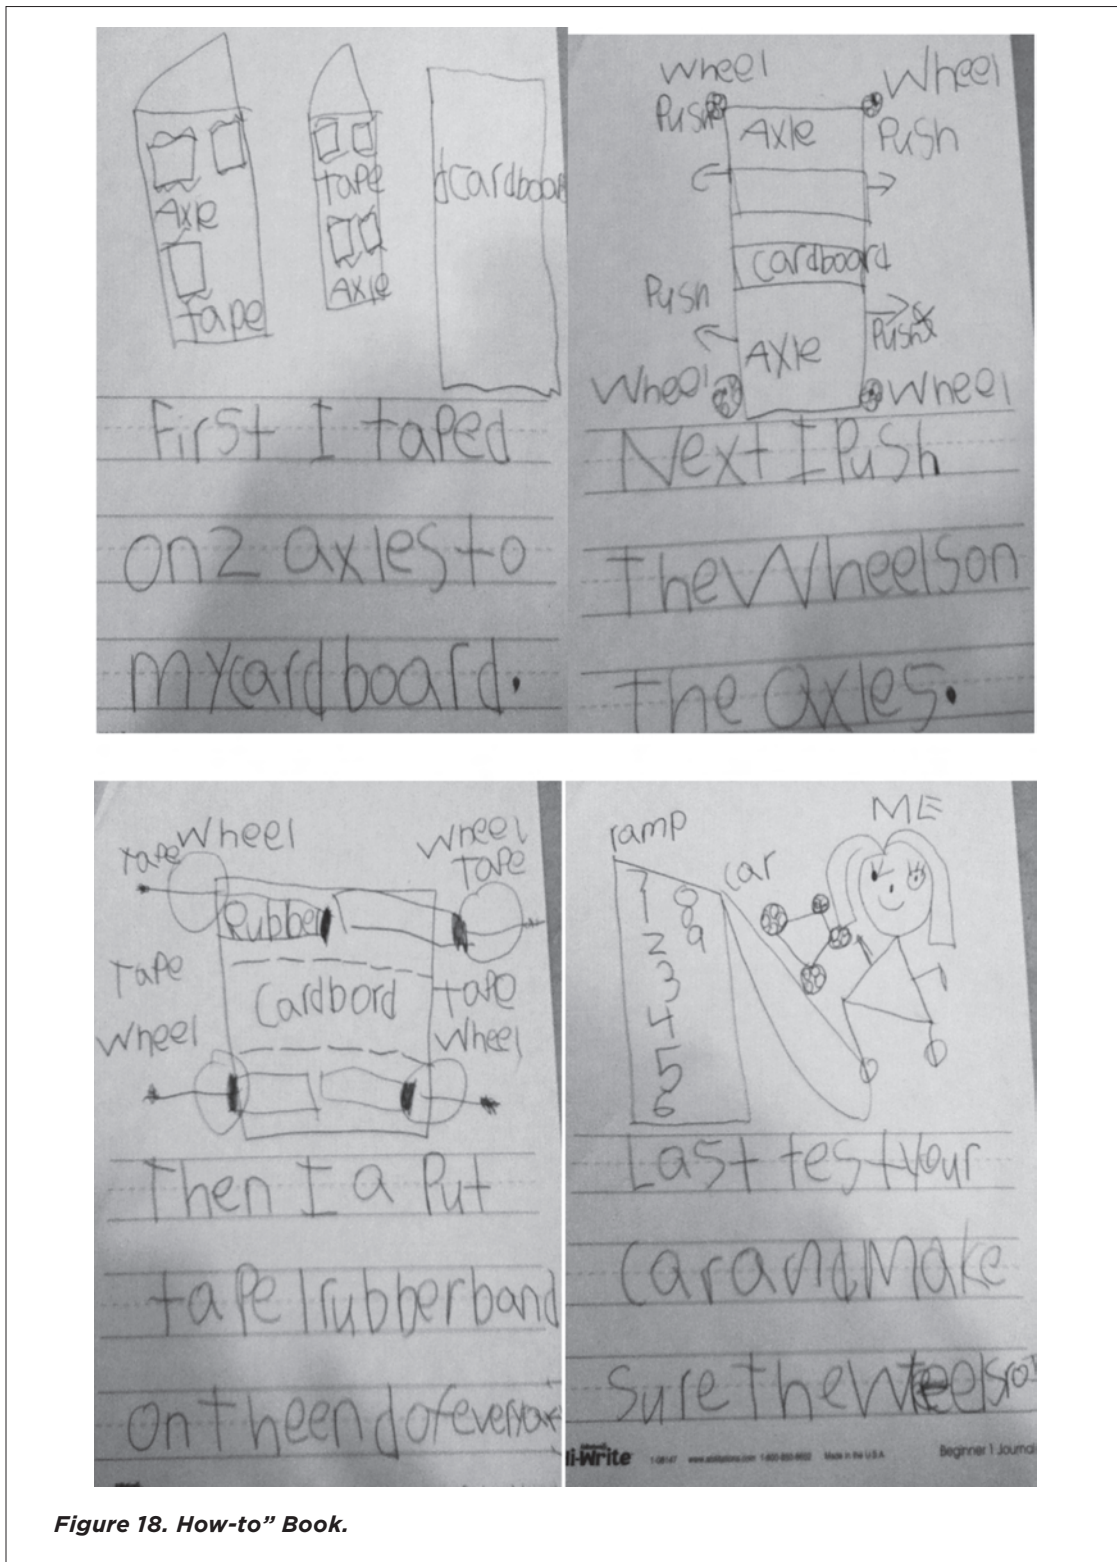 Axle
tape
tape
Axle
cardboar
First I taped
on 2 axles to
my cardboard.
Wheel
Wheel
Push
Axle
Push
cardboard
Push
Push
Axle
Wheel
Wheel
Next I Push
the Wheels on
the axles.
tape Wheel
Wheel
tape
Rubber
tape
Cardbord
tape
Wheel
Wheel
Then I a Put
tape 1 rubber band
on the end of every
ramp
ME
car
7 8
1 9
2
3
4
5
6
Last test your
car and Make
Sure the wheels ro
Hi-Write
1-800-850-9602 Made in the U.S.A.
Beginner 1 Journal
Figure 18. How-to” Book.